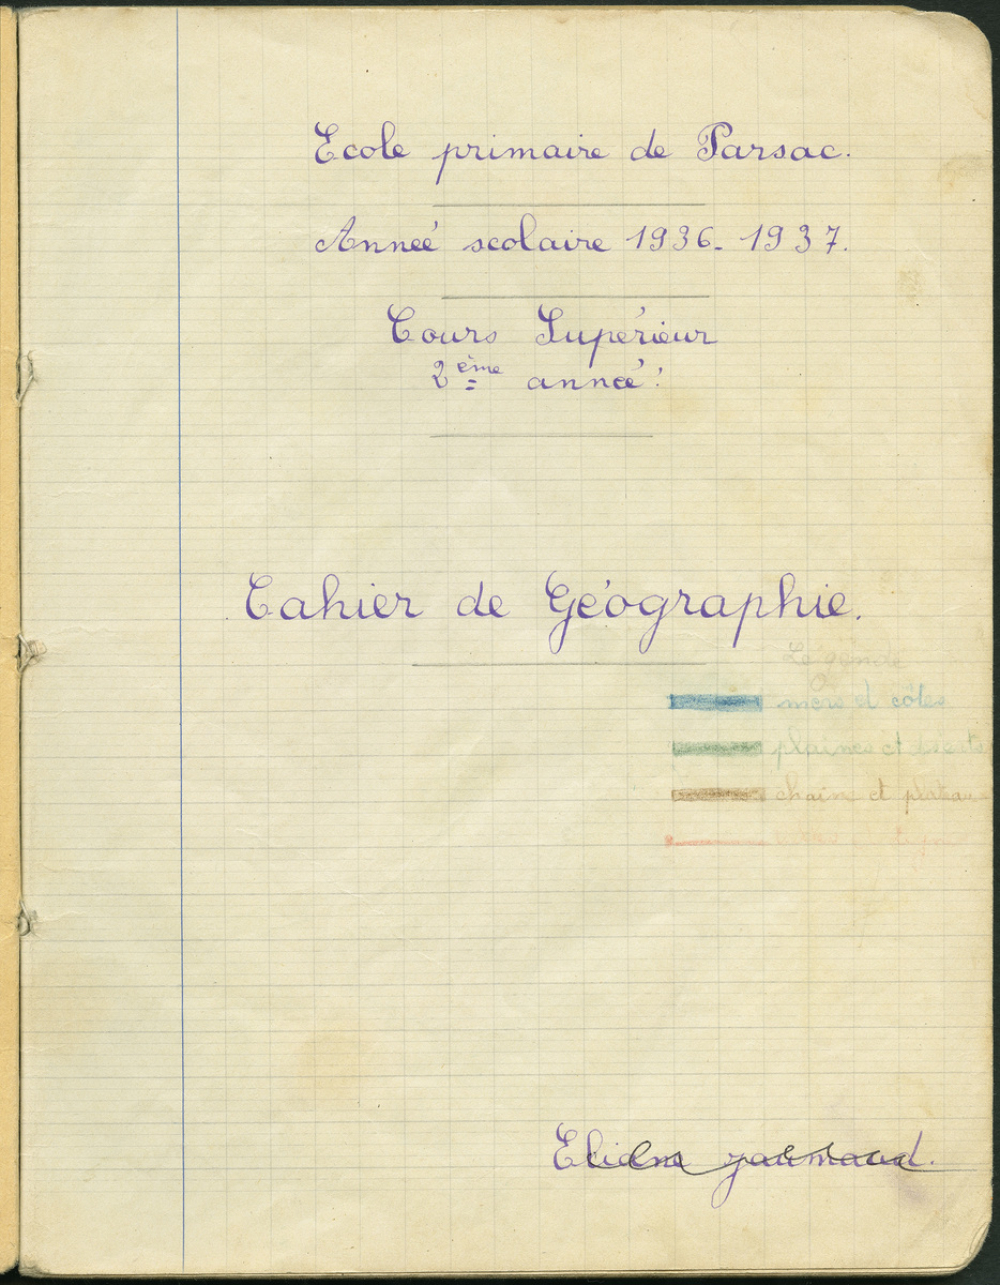 Ecole primaire de Parsac.
Année scolaire 1936-1937.
Cours Supérieur
2ème année.
Cahier de Géographie.
Légende
mers et côtes
plaines et déserts
chaine et plateau